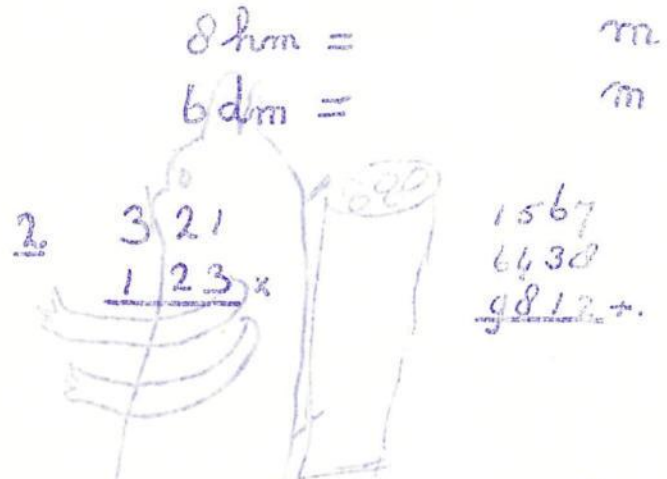 8 hm = m
6 dm = m
2. 321
123 x
1567
6438
9812 +.